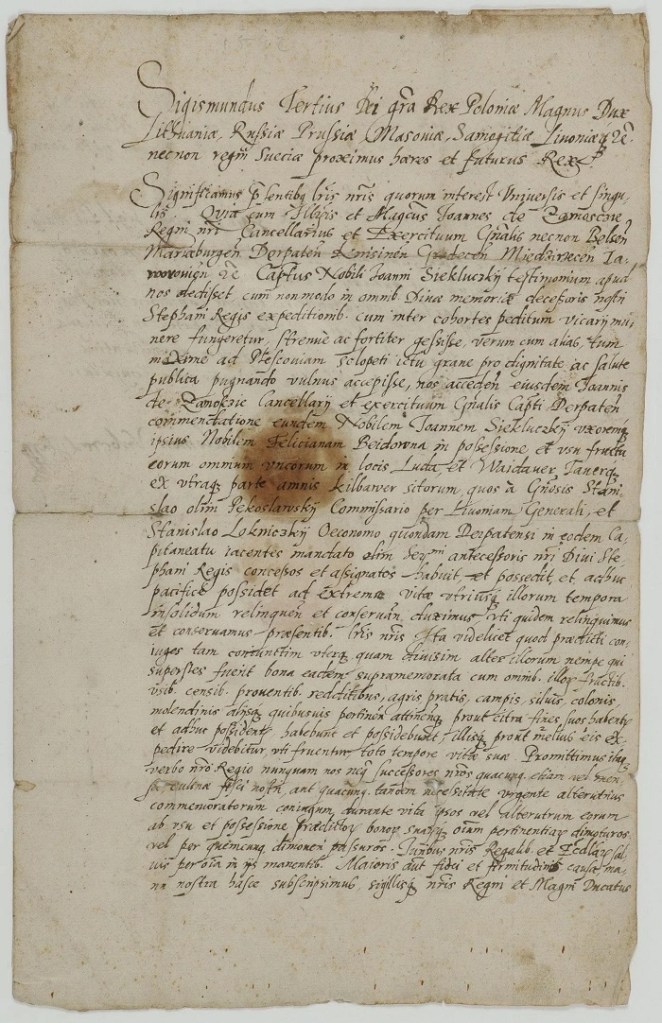 Sigismundus Tertius Dei gra Rex Poloniæ Magnus Dux
Lithuaniæ, Russiæ Prussiæ Masoviæ, Samogitiæ Livoniæq
necnon regni Sueciæ proximus hæres et futurus Rex
Significamus pntibq lris nris quorum interest Vniversis et singu
lis Quia cum Illris et Mgcus Joannes de Zamoscie
Regni nri Cancellarius et Exercituum Gnalis necnon Belsen
Marieburgen Derpaten Knisinen Grodecen Miedzirecen Ja
voroviēn Captus Nobili Joanni Siekluczkÿ testimonium apud
nos dedisset cum non modo in omnib Divæ memoriæ decessoris nostri
Stephani Regis expeditionib. cum inter cohortes peditum vicarÿ mu
nere fungeretur, strenue ac fortiter gessisse, verum cum alias, tum
maxime ad Plescoviam sclopeti ictu grave pro dignitate ac salute
publica pugnando vulnus accepisse, nos acceden eiusdem Joannis
de Zamoscie Cancellarÿ et exercituum Gnalis Capti Derpaten
commendatione eundem Nobilem Joannem Siekluczkÿ uxoremq
ipsius Nobilem Felicianam in possessione et usu fructu
eorum omnium uncorum in locis Luda et Waidaver
ex utraq parte amnis Kilbawer sitorum, quos à Gnosis Stani
slao olim Pekoslawskÿ Commissario per Livoniam Generali, et
Stanislao Oeconomo quondam Derpatensi in eodem Ca
pitaneatu iacentes mandato olim antecessoris nri Divi Ste
phani Regis concessos et assignatos habuit, et possedit, et adhuc
pacifice possidet ad extrema vitæ utriusq illorum tempora
in solidum relinquen et conservan duximus uti quidem relinquimus
et conservamus præsentib. lris nris Ita videlicet quod prædicti con
iuges tam coniunctim uterq quam divisim alter illorum nempe qui
superstes fuerit bona eadem supramemorata cum omnib. illor fructib.
usib. censib. proventib. redditibus, agris pratis, campis, silvis, colonis,
molendinis alÿsq quibusvis pertinen attinenq prout citra fines suos habent
et adhuc possident habebunt et possidebunt illisq prout melius eis ex
pedire videbitur uti fruentur toto tempore vitæ suæ. Promittimus
verbo nro Regio nunquam nos neq successores nros quacunq etiam vel
fisci nostri, aut quacunq tandem necessitate urgente alterutrius
commemoratorum coniugum durante vita ipsos vel alterutrum eorum
ab usu et possessione prædictor bonor suarq oium pertinentiar dimoturos
vel per quemcunq dimoveri passuros. Juribus nris Regalib et Ecclar sal
vis per oia in ÿs manentib. Maioris aut fidei et firmitudinis causa ma
nu nostra hasce subscripsimus, sigillisq nris Regni et Magni Ducatus